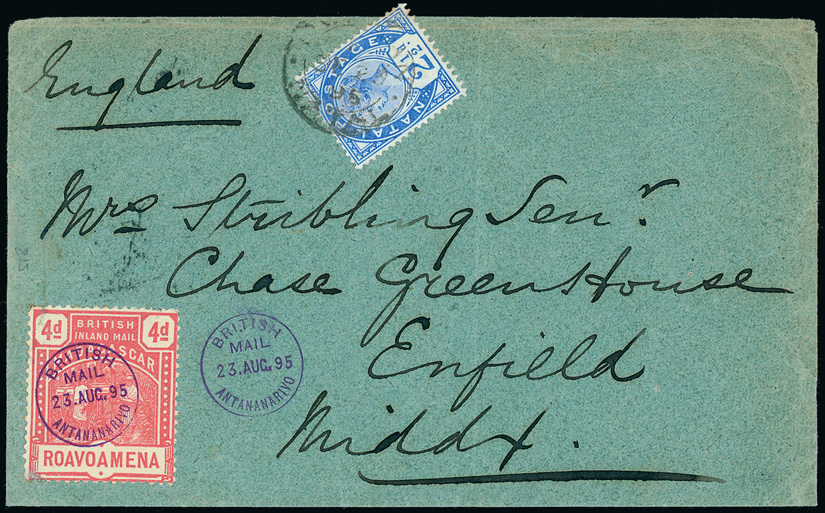 England
POSTAGE
NATAL
2½
Mrs Stribling Senr.
Chase Green House
Enfield
Middx.
4d BRITISH 4d
INLAND MAIL
BRITISH
MAIL
23.AUG.95
ANTANANARIVO
ROAVOAMENA
BRITISH
MAIL
23.AUG.95
ANTANANARIVO